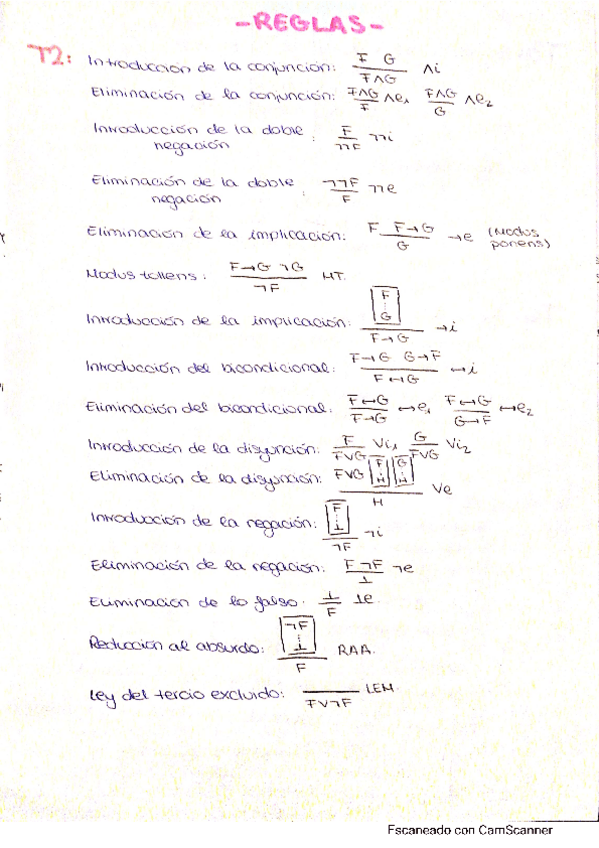 -REGLAS-
T2: Introducción de la conjunción: F G / F∧G ∧i
Eliminación de la conjunción: F∧G / F ∧e₁ F∧G / G ∧e₂
Introducción de la doble negación: F / ¬¬F ¬¬i
Eliminación de la doble negación: ¬¬F / F ¬¬e
Eliminación de la implicación: F F→G / G →e (Modus ponens)
Modus tollens: F→G ¬G / ¬F MT.
Introducción de la implicación: [F ⋮ G] / F→G →i
Introducción del bicondicional: F→G G→F / F↔G ↔i
Eliminación del bicondicional: F↔G / F→G ↔e₁ F↔G / G→F ↔e₂
Introducción de la disyunción: F / F∨G ∨i₁ G / F∨G ∨i₂
Eliminación de la disyunción: F∨G [F ⋮ H] [G ⋮ H] / H ∨e
Introducción de la negación: [F ⋮ ⊥] / ¬F ¬i
Eliminación de la negación: F ¬F / ⊥ ¬e
Eliminación de lo falso: ⊥ / F ⊥e
Reducción al absurdo: [¬F ⋮ ⊥] / F RAA.
Ley del tercio excluido: / F∨¬F LEM.
Escaneado con CamScanner